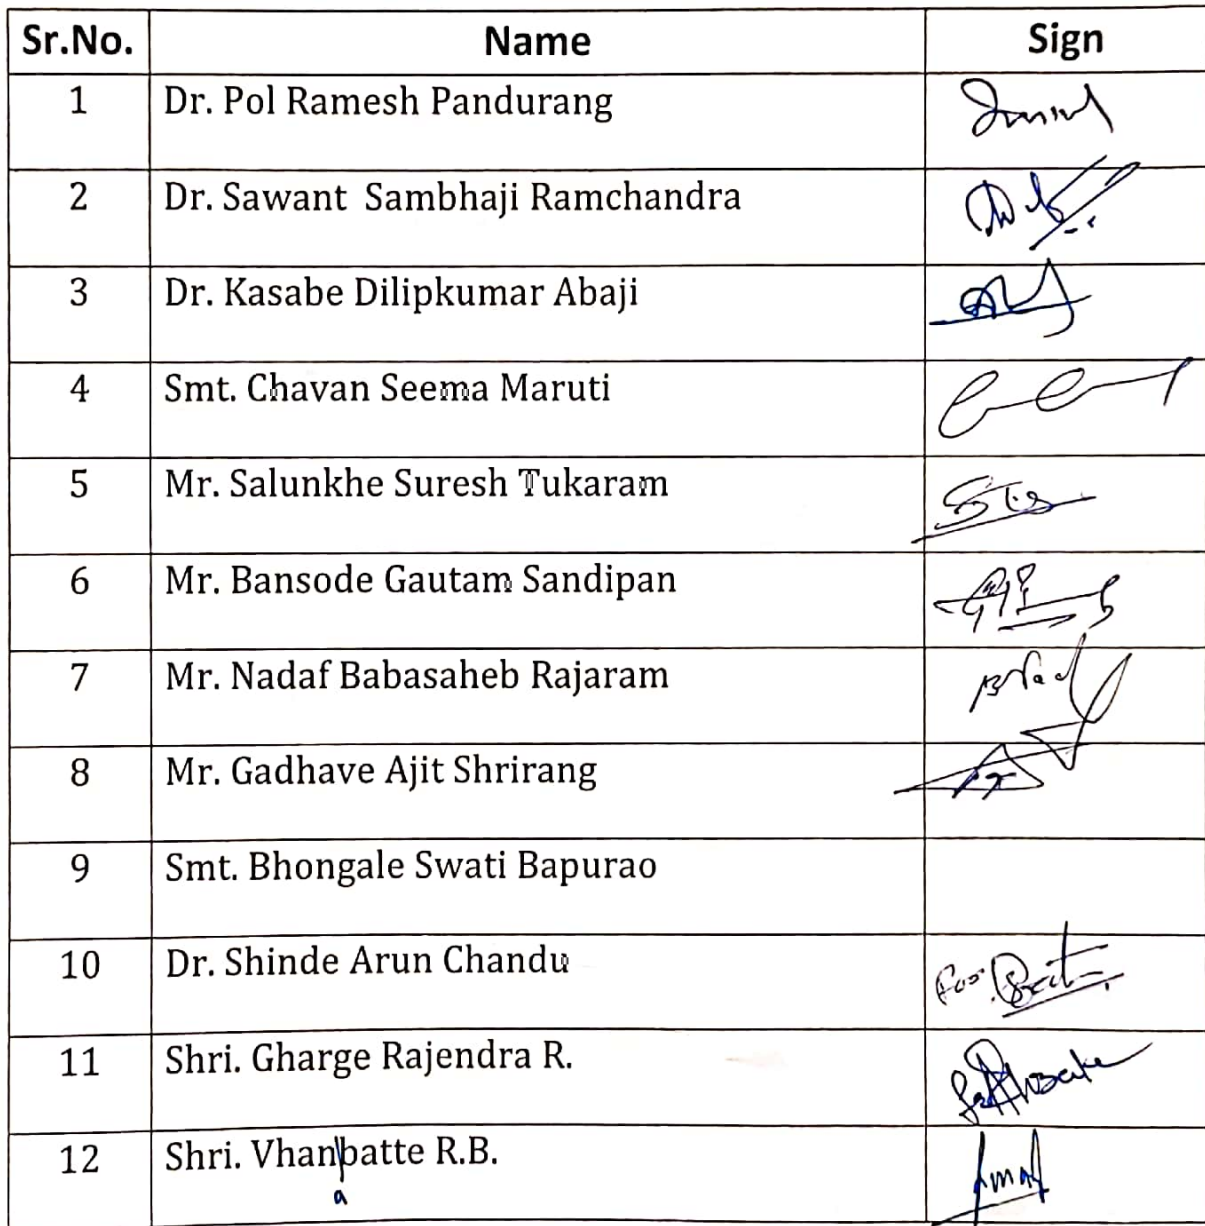 Sr.No. Name Sign
1 Dr. Pol Ramesh Pandurang
2 Dr. Sawant Sambhaji Ramchandra
3 Dr. Kasabe Dilipkumar Abaji
4 Smt. Chavan Seema Maruti
5 Mr. Salunkhe Suresh Tukaram
6 Mr. Bansode Gautam Sandipan
7 Mr. Nadaf Babasaheb Rajaram
8 Mr. Gadhave Ajit Shrirang
9 Smt. Bhongale Swati Bapurao
10 Dr. Shinde Arun Chandu For
11 Shri. Gharge Rajendra R.
12 Shri. Vhanbatte R.B.
a